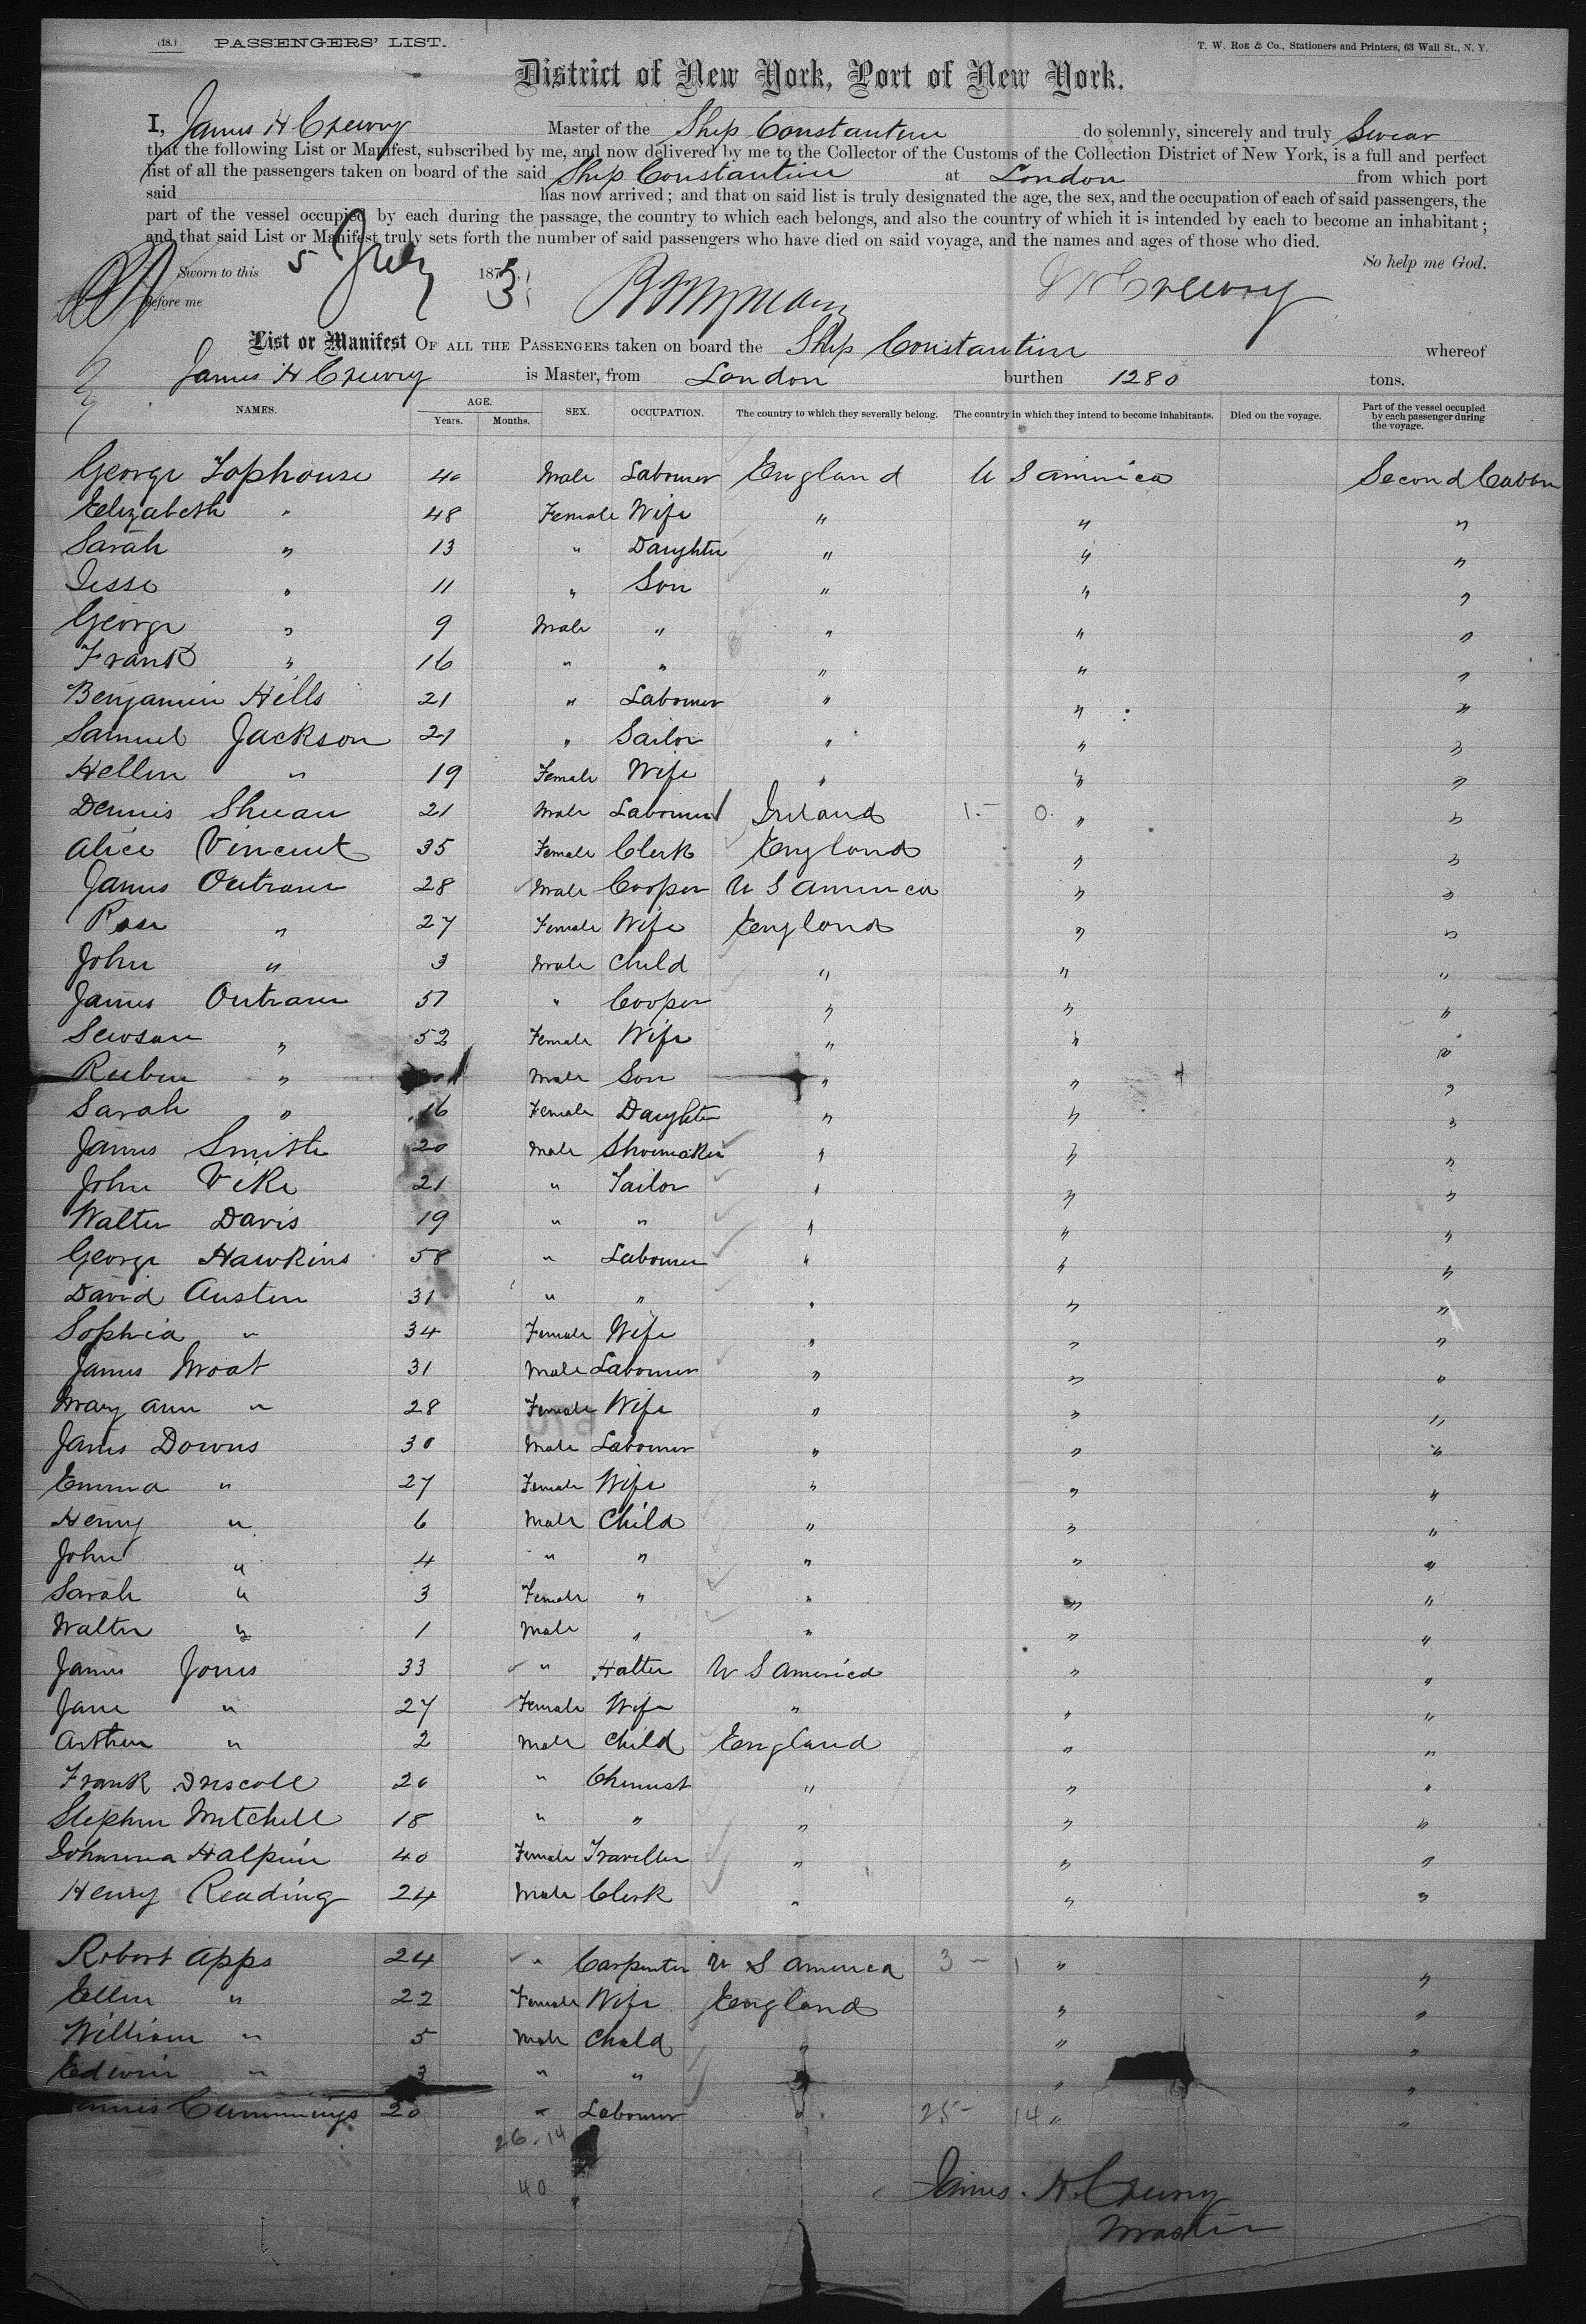 (18.) PASSENGERS' LIST. T. W. ROE & Co., Stationers and Printers, 63 Wall St., N. Y.
District of New York, Port of New York.
I, James H Master of the Ship Constantine do solemnly, sincerely and truly Swear
that the following List or Manifest, subscribed by me, and now delivered by me to the Collector of the Customs of the Collection District of New York, is a full and perfect
list of all the passengers taken on board of the said Ship Constantine at London from which port
said has now arrived; and that on said list is truly designated the age, the sex, and the occupation of each of said passengers, the
part of the vessel occupied by each during the passage, the country to which each belongs, and also the country of which it is intended by each to become an inhabitant;
and that said List or Manifest truly sets forth the number of said passengers who have died on said voyage, and the names and ages of those who died.
So help me God.
Sworn to this 5 July 1873
Before me
List or Manifest OF ALL THE PASSENGERS taken on board the Ship Constantine whereof
James H is Master, from London burthen 1280 tons.
NAMES. AGE. Years. Months. SEX. OCCUPATION. The country to which they severally belong. The country in which they intend to become inhabitants. Died on the voyage. Part of the vessel occupied by each passenger during the voyage.
George Tophouse 40 Male Labourer England U S America Second Cabin
Elizabeth " 48 Female Wife " " "
Sarah " 13 " Daughter " " "
Jesse " 11 " Son " " "
George " 9 Male " " " "
Frank " 16 " " " " "
Benjamin Hills 21 " Labourer " " "
Samuel Jackson 21 " Sailor " " "
Hellen " 19 Female Wife " " "
Dennis 21 Male Labourer Ireland 1 - 0 " "
Alice Vincent 35 Female Clerk England " "
James Outram 28 Male Cooper U S America " "
Rose " 27 Female Wife England " "
John " 3 Male Child " " "
James Outram 51 " Cooper " " "
Sewsan " 52 Female Wife " " "
Reuben " Male Son " " "
Sarah " 16 Female Daughter " " "
James Smith 20 Male Shoemaker " " "
John Vike 21 " Tailor " " "
Walter Davis 19 " " " " "
George Hawkins 58 " Labourer " " "
David Austen 31 " " " " "
Sophia " 34 Female Wife " " "
James Moat 31 Male Labourer " " "
Mary Ann " 28 Female Wife " " "
James Downs 30 Male Labourer " " "
Emma " 27 Female Wife " " "
Henry " 6 Male Child " " "
John " 4 " " " " "
Sarah " 3 Female " " " "
Walter " 1 Male " " " "
James Jones 33 " Hatter U S America " "
Jane " 27 Female Wife " " "
Arthur " 2 Male Child England " "
Frank Driscoll 20 " Chemist " " "
Stephen Mitchell 18 " " " " "
Johanna Halpin 40 Female Traveller " " "
Henry Reading 24 Male Clerk " " "
Robert Apps 24 " Carpenter U S America 3 - 1 " "
Ellen " 22 Female Wife England " "
William " 5 Male Child " " "
Edwin " 3 " " " " "
Cummings 20 " Labourer " 25 - 14 " "
26.14
40
James H
Master